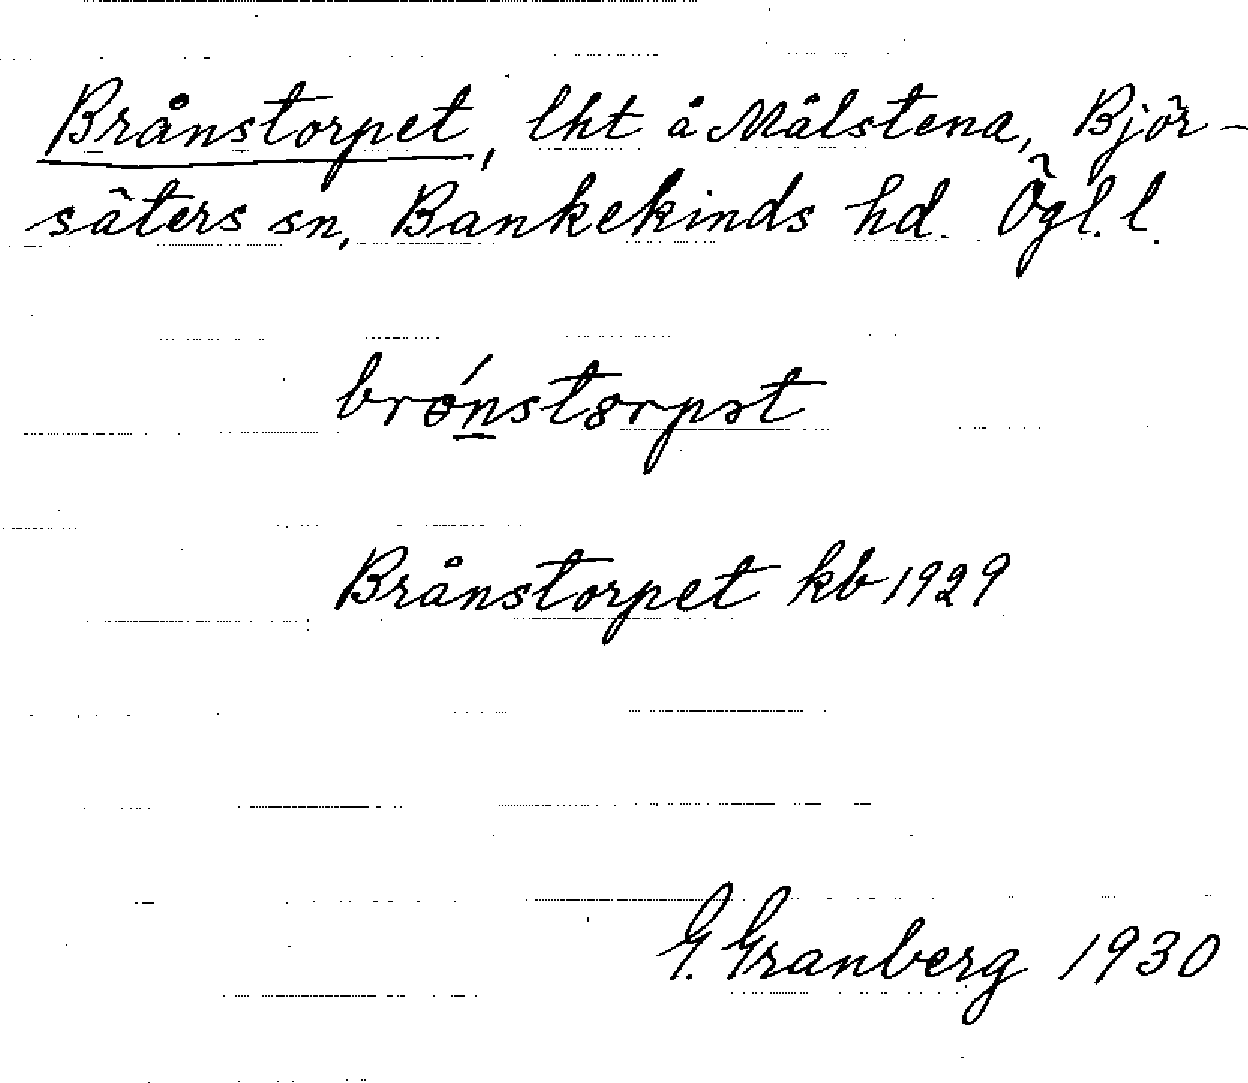 Brånstorpet, lht å Målstena, Björ-
säters sn, Bankekinds hd. Ögl. l.
brónstorpət
Brånstorpet kb 1929
G. Granberg 1930